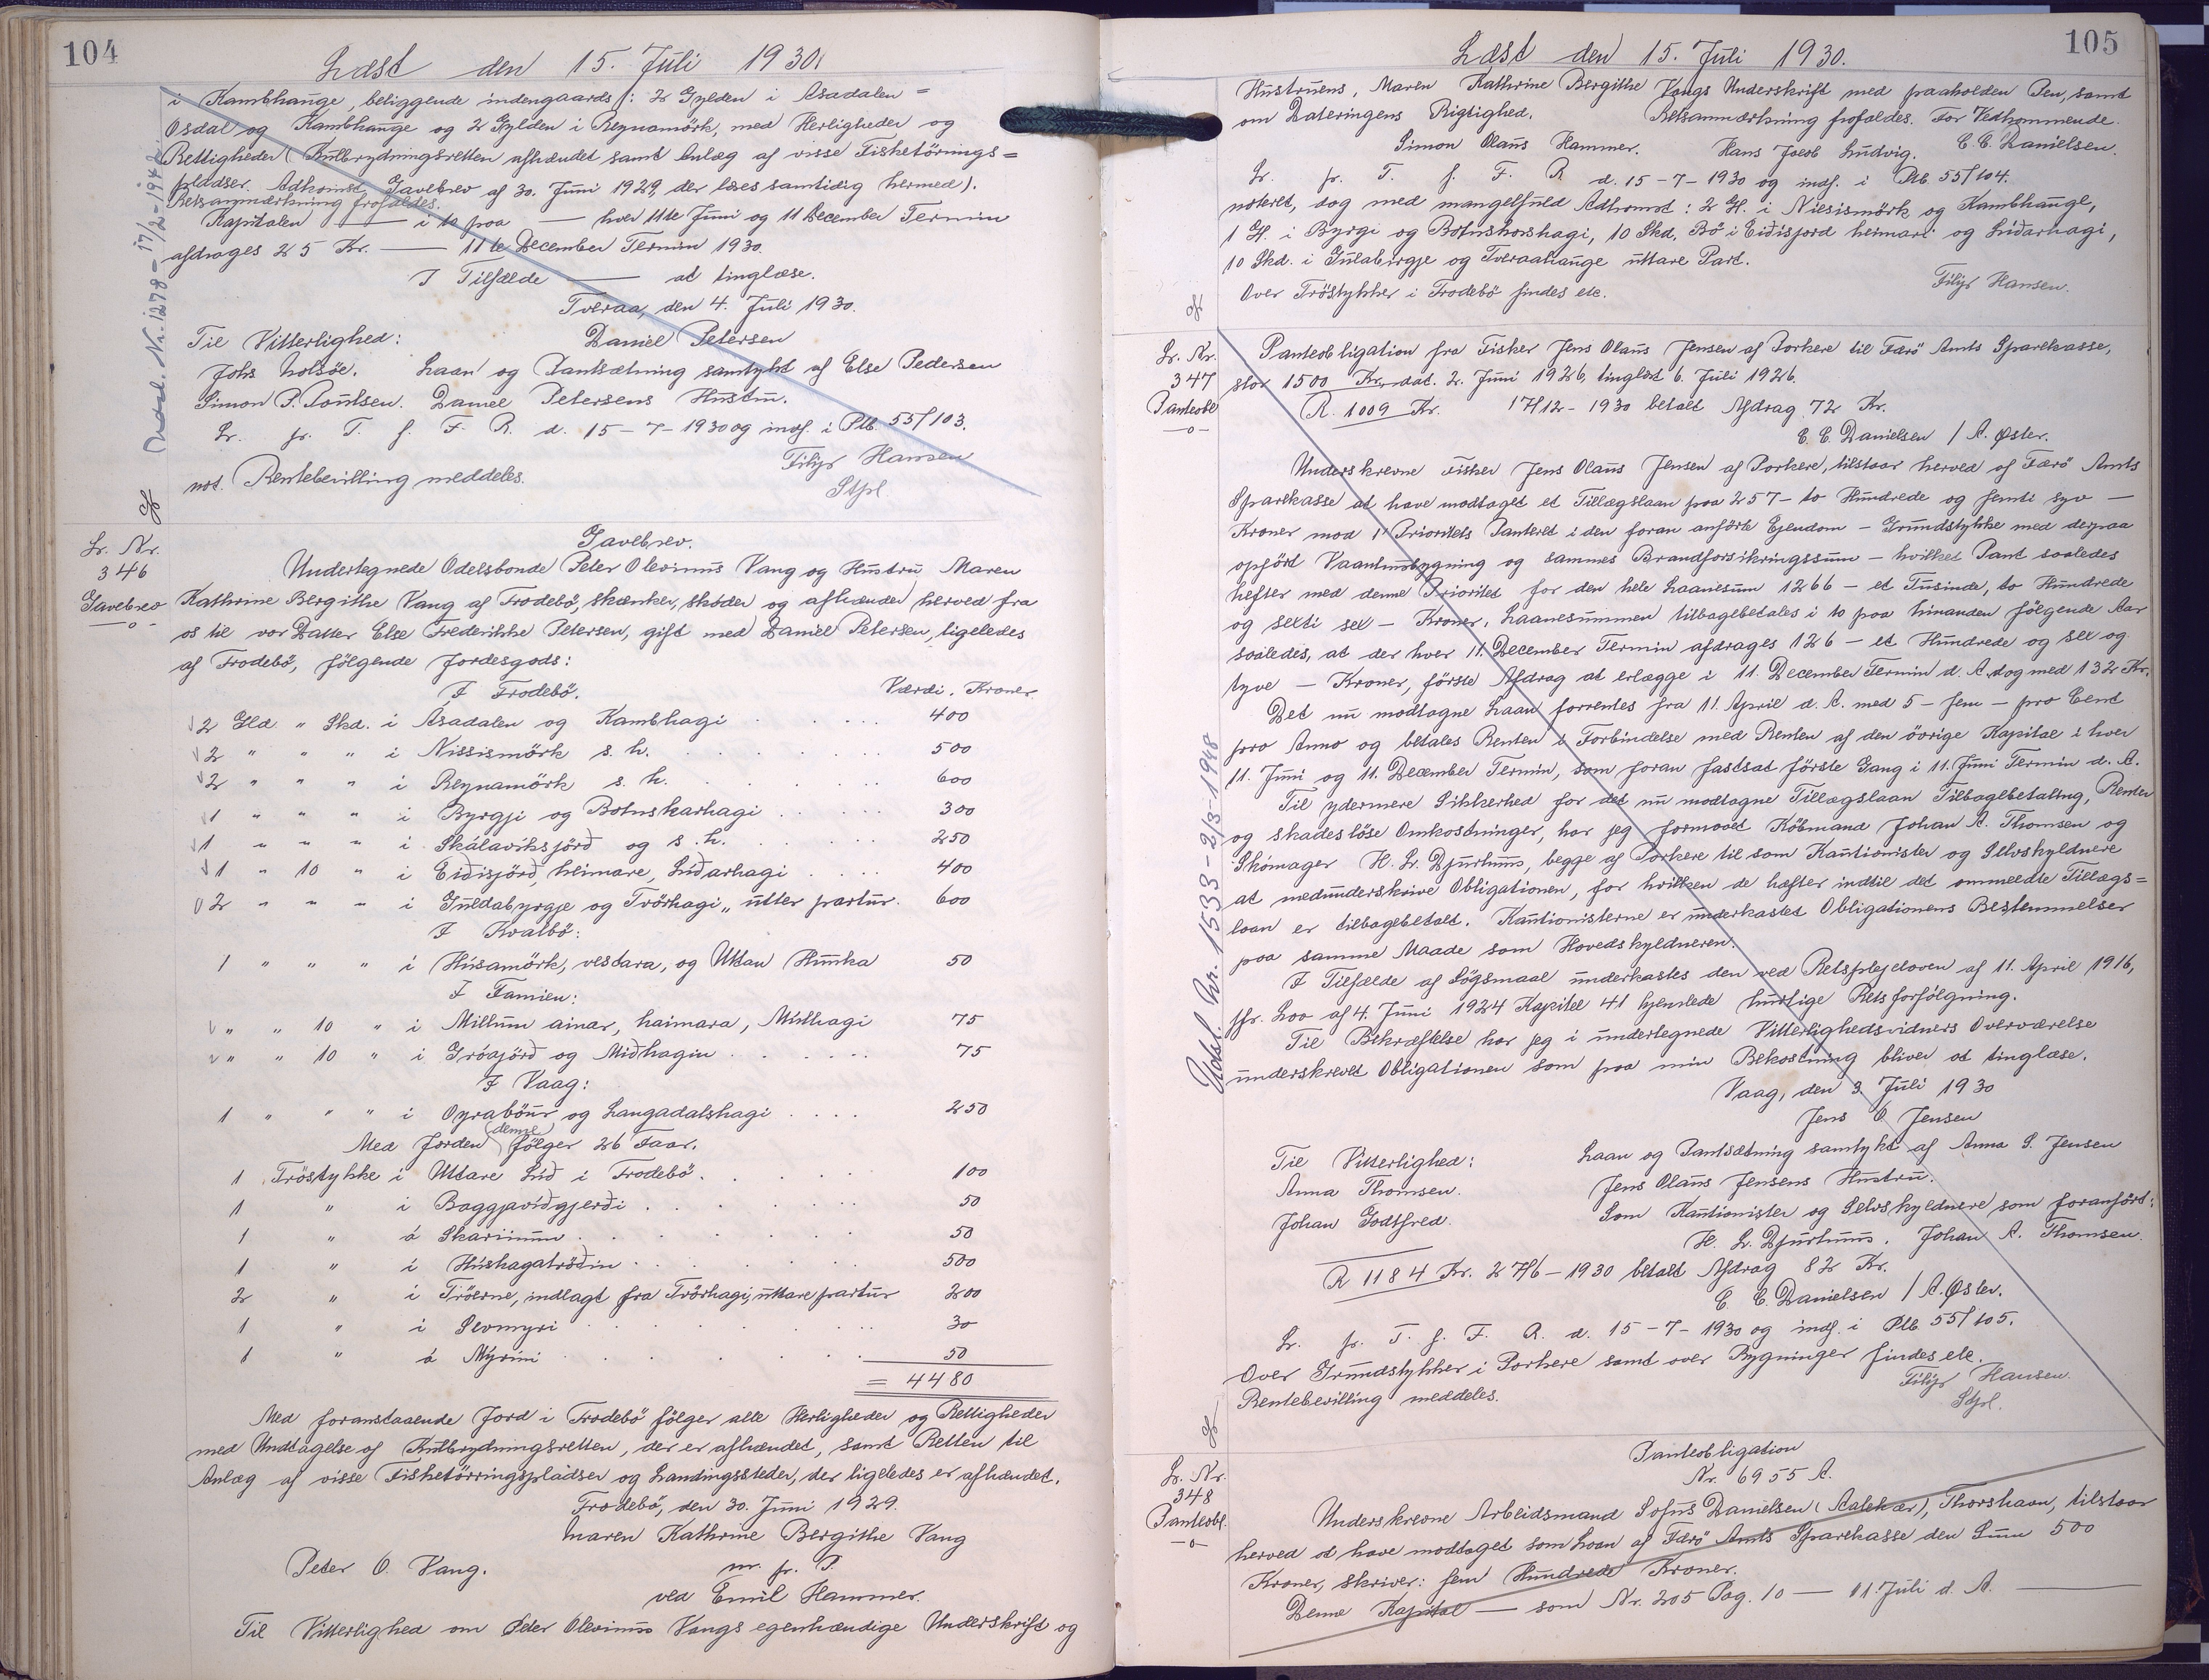 104
Læst den 15. Juli 1930.
i Kambhauge, beliggende indengaards /: 2 Gylden i Asadalen =
Osdal og Kambhauge og 2 Gylden i Reynamörk, med Herligheder og
Rettigheder (Kulbrydningsretten afhændet samt Anlæg af visse Fisketörrings=
pladser. Adkomst Gavebrev af 30. Juni 1929, der læses samtidig hermed).
Retsanmærkning frafaldes.
Kapitalen — i to paa — hver 11te Juni og 11 December Termin
afdrages 25 Kr. — 11te December Termin 1930.
I Tilfælde — at tinglæse.
Tveraa, den 4. Juli 1930.
Til Vitterlighed: Daniel Petersen
Johs Holsöe. Laan og Pantsætning samtykt af Else Pedersen
Simon P. Poulsen. Daniel Petersens Hustru.
Lr. fr. T. f. F. R. d. 15-7-1930 og indf. i Ptb. 55/103.
not. Rentebevilling meddeles. Filip Hansen
Stpl.
Udsl. Nr. 1278 - 17/2-1942
Lr. Nr.
346
Gavebrev
Gavebrev.
Undertegnede Odelsbonde Peter Olevinus Vang og Hustru Maren
Kathrine Bergithe Vang af Frodebö, skænker, skøder og afhænder herved fra
os til vor Datter Else Frederikke Petersen, gift med Daniel Petersen, ligeledes
af Frodebö, følgende Jordesgods:
I Frodebö. Værdi. Kroner.
2 Gld " Skd. i Ásadalen og Kambhagi 400
2 " " " i Nissismörk s. h. 500
2 " " " i Reynamörk s. h. 600
1 " " " i Byrgji og Botnskarhagi 300
1 " " " i Skálavíksjörð og s. h. 250
1 " 10 " i Eiðisjörð, heimare, Liðarhagi 400
2 " " " i Guldabyrgje og Tvörhagi, utter partur. 600
I Kvalbö:
1 " " " i Húsamörk, vestara, og Uttan Hunka 50
I Famien:
" " 10 " i Millum ainar, haimara, Miðhagi 75
" " 10 " i Gróajörð og Miðhagin 75
I Vaag:
1 " " " i Oyraböur og Langadalshagi 250
Med Jorden (denne) følger 26 Faar.
1 Tröstykke i Uttare Lið i Frodebö. 100
1 " i Baggjaviðgjerði 50
1 " á Skarinum 50
1 " i Húshagatröðin 500
2 " i Tröerne, indlagt fra Tvörhagi, uttare partur 200
1 " i Sevmyri 30
1 " á Mýrini 50
= 4480
Med foranstaaende Jord i Frodebö følger alle Herligheder og Rettigheder
med Undtagelse af Kulbrydningsretten, der er afhændet, samt Retten til
Anlæg af visse Fisketörringspladser og Landingssteder, der ligeledes er afhændet.
Frodebö, den 30. Juni 1929.
Maren Kathrine Bergithe Vang
Peter O. Vang. m. p. P.
ved Emil Hammer.
Til Vitterlighed om Peter Olevinus Vangs egenhændige Underskrift og
105
Læst den 15. Juli 1930.
Hustruens, Maren Kathrine Bergithe Vangs Underskrift med paaholden Pen, samt
om Dateringens Rigtighed. Retsanmærkning frafaldes. For Vedkommende.
Simon Olaus Hammer. Hans Jacob Ludvig. C. C. Danielsen.
Lr. fr. T. f. F. R d. 15-7-1930 og indf. i Ptb. 55/104.
noteret, dog med mangelfuld Adkomst: 2 Gl. i Niesismörk og Kambhauge,
1 Gl. i Byrgi og Botnskorshagi, 10 Skd. Bö i Eiðisjord heimari og Liðarhagi,
10 Skd. i Gulabirgje og Tveraahauge uttare Part.
Over Tröstykker i Frodebö findes etc. Filip Hansen.
Lr. Nr.
347
Panteobl
Panteobligation fra Fisker Jens Olaus Jensen af Porkere til Færö Amts Sparekasse,
stor 1500 Kr. dat. 2. Juni 1926, tinglæst 6. Juli 1926.
R. 1009 Kr. 17/12-1930 betalt Afdrag 72 Kr.
C. C. Danielsen / A. Øster.
Underskrevne Fisker Jens Olaus Jensen af Porkere, tilstaar herved af Færö Amts
Sparekasse at have modtaget et Tillægslaan paa 257 - to Hundrede og femti syv —
Kroner mod 1' Prioritets Panteret i den foran anförte Ejendom - Grundstykke med derpaa
opfört Vaaningsbygning og sammes Brandforsikringssum - hvilket Pant saaledes
hefter med denne Prioritet for den hele Laanesum 1266 - et Tusinde, to Hundrede
og sexti sex - Kroner. Laanesummen tilbagebetales i to paa hinanden følgende Aar
saaledes, at der hver 11. December Termin afdrages 126 - et Hundrede og sex og
tyve - Kroner, förste Afdrag at erlægge i 11. December Termin d. A. dog med 132 Kr.
Det nu modtagne Laan forrentes fra 11. April d. A. med 5 - fem - pro Cent
pro Anno og betales Renten i Forbindelse med Renten af den övrige Kapital i hver
11. Juni og 11. December Termin, som foran fastsat förste Gang i 11. Juni Termin d. A.
Til ydermere Sikkerhed for det nu modtagne Tillægslaan Tilbagebetaling, Renter
og skadeslöse Omkostninger, har jeg formaaet Köbmand Johan A. Thomsen og
Skomager H. L. Djurhuus, begge af Porkere til som Kautionister og Selvskyldnere
at medunderskrive Obligationen, for hvilken de hæfter indtil det ommeldte Tillægs=
laan er tilbagebetalt. Kautionisterne er underkastet Obligationens Bestemmelser
paa samme Maade som Hovedskyldneren.
I Tilfælde af Sögsmaal underkastes den ved Retsplejeloven af 11. April 1916,
jfr. Lov af 4. Juni 1924 Kapitel 41 hjemlede hurtige Retsforfölgning.
Til Bekræftelse har jeg i undertegnede Vitterlighedsvidners Overværelse
underskrevet Obligationen som paa min Bekostning bliver at tinglæse.
Vaag, den 3. Juli 1930
Jens O. Jensen
Til Vitterlighed: Laan og Pantsætning samtykt af Anna S. Jensen
Anna Thomsen. Jens Olaus Jensens Hustru.
Johan Godtfred. Som Kautionister og Selvskyldnere som foranfört:
H. L. Djurhuus. Johan A. Thomsen.
R 1184 Kr. 27/6-1930 betalt Afdrag 82 Kr.
C. C. Danielsen / A. Øster.
Lr. fr. T. f. F. R. d. 15-7-1930 og indf. i Ptb. 55/105.
Over Grundstykker i Porkere samt over Bygninger findes etc.
Rentebevilling meddeles. Filip Hansen.
Stpl.
Udsl. Nr. 1533 - 2/3-1948
Lr. Nr.
348
Panteobl.
Panteobligation
Nr. 6955 A.
Underskrevne Arbeidsmand Sofus Danielsen (Aalekær), Thorshavn, tilstaar
herved at have modtaget som Laan af Færö Amts Sparekasse den Sum 500
Kroner, skriver: fem Hundrede Kroner.
Denne Kapital — som Nr. 205 Pag. 10 — 11. Juli d. A. —